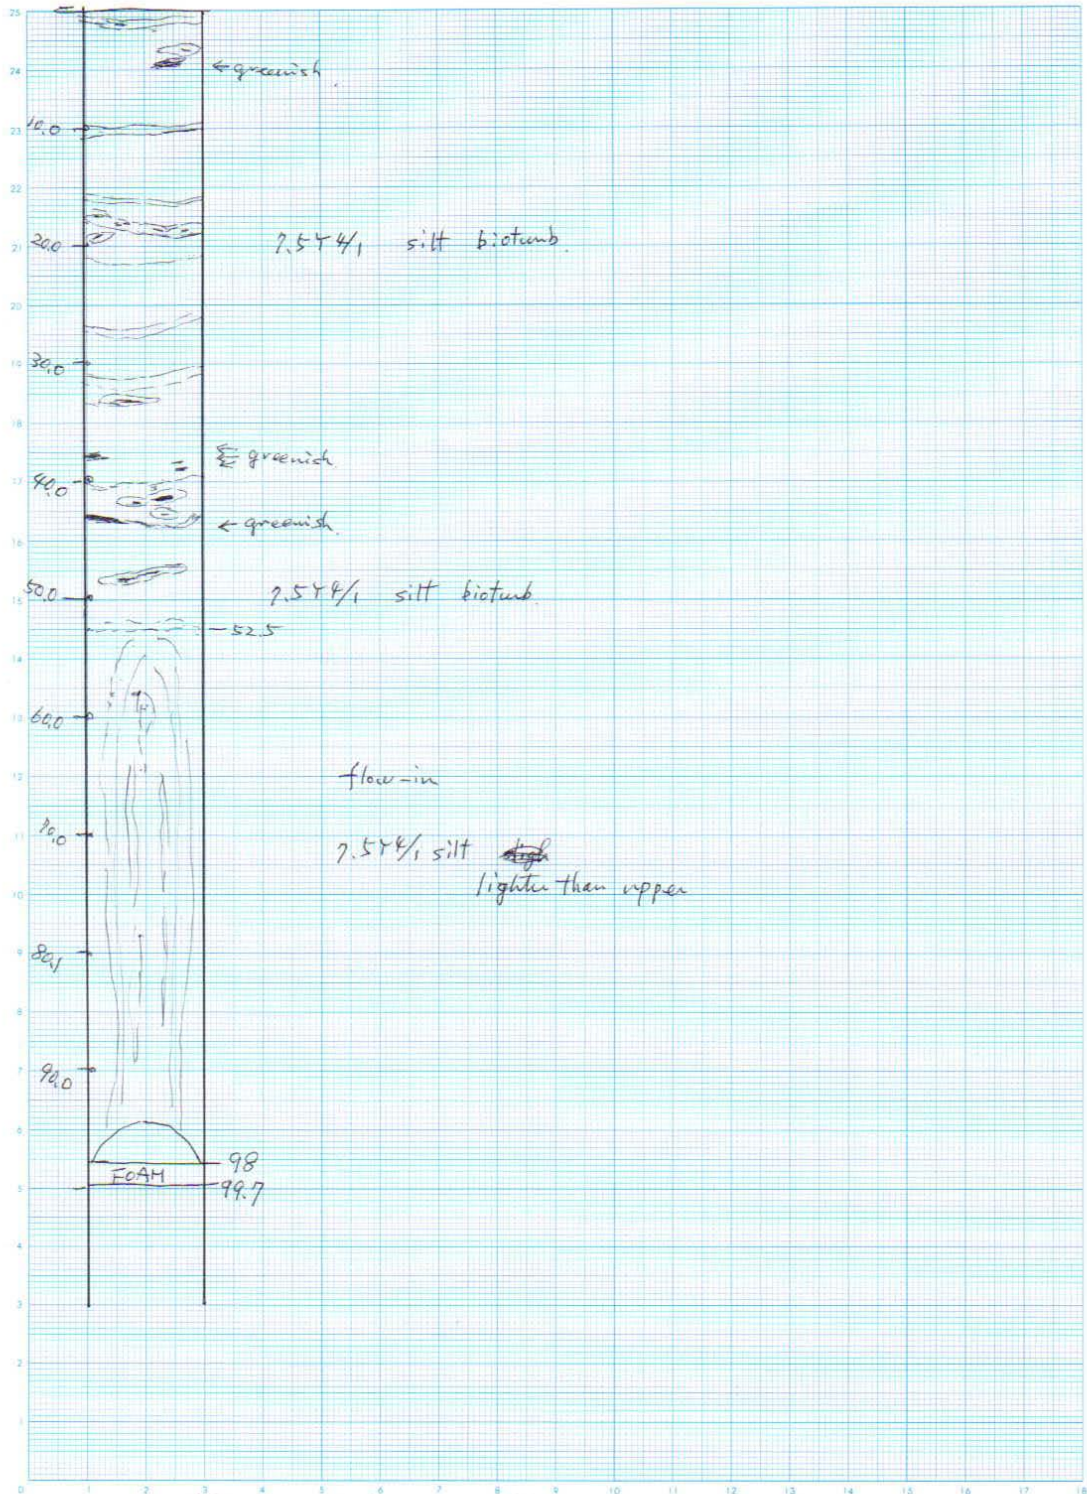 25
24
← greenish.
23
10.0
22
20.0
21
7.5Y 4/1 silt bioturb.
20
30.0
19
18
greenish.
40.0
17
← greenish.
16
50.0
15
7.5Y 4/1 silt bioturb.
52.5
14
60.0
13
12
flow-in
70.0
11
7.5Y 4/1 silt
lighter than upper
10
80.1
9
8
90.0
7
6
98
FOAM
5
99.7
4
3
2
1
0 1 2 3 4 5 6 7 8 9 10 11 12 13 14 15 16 17 18